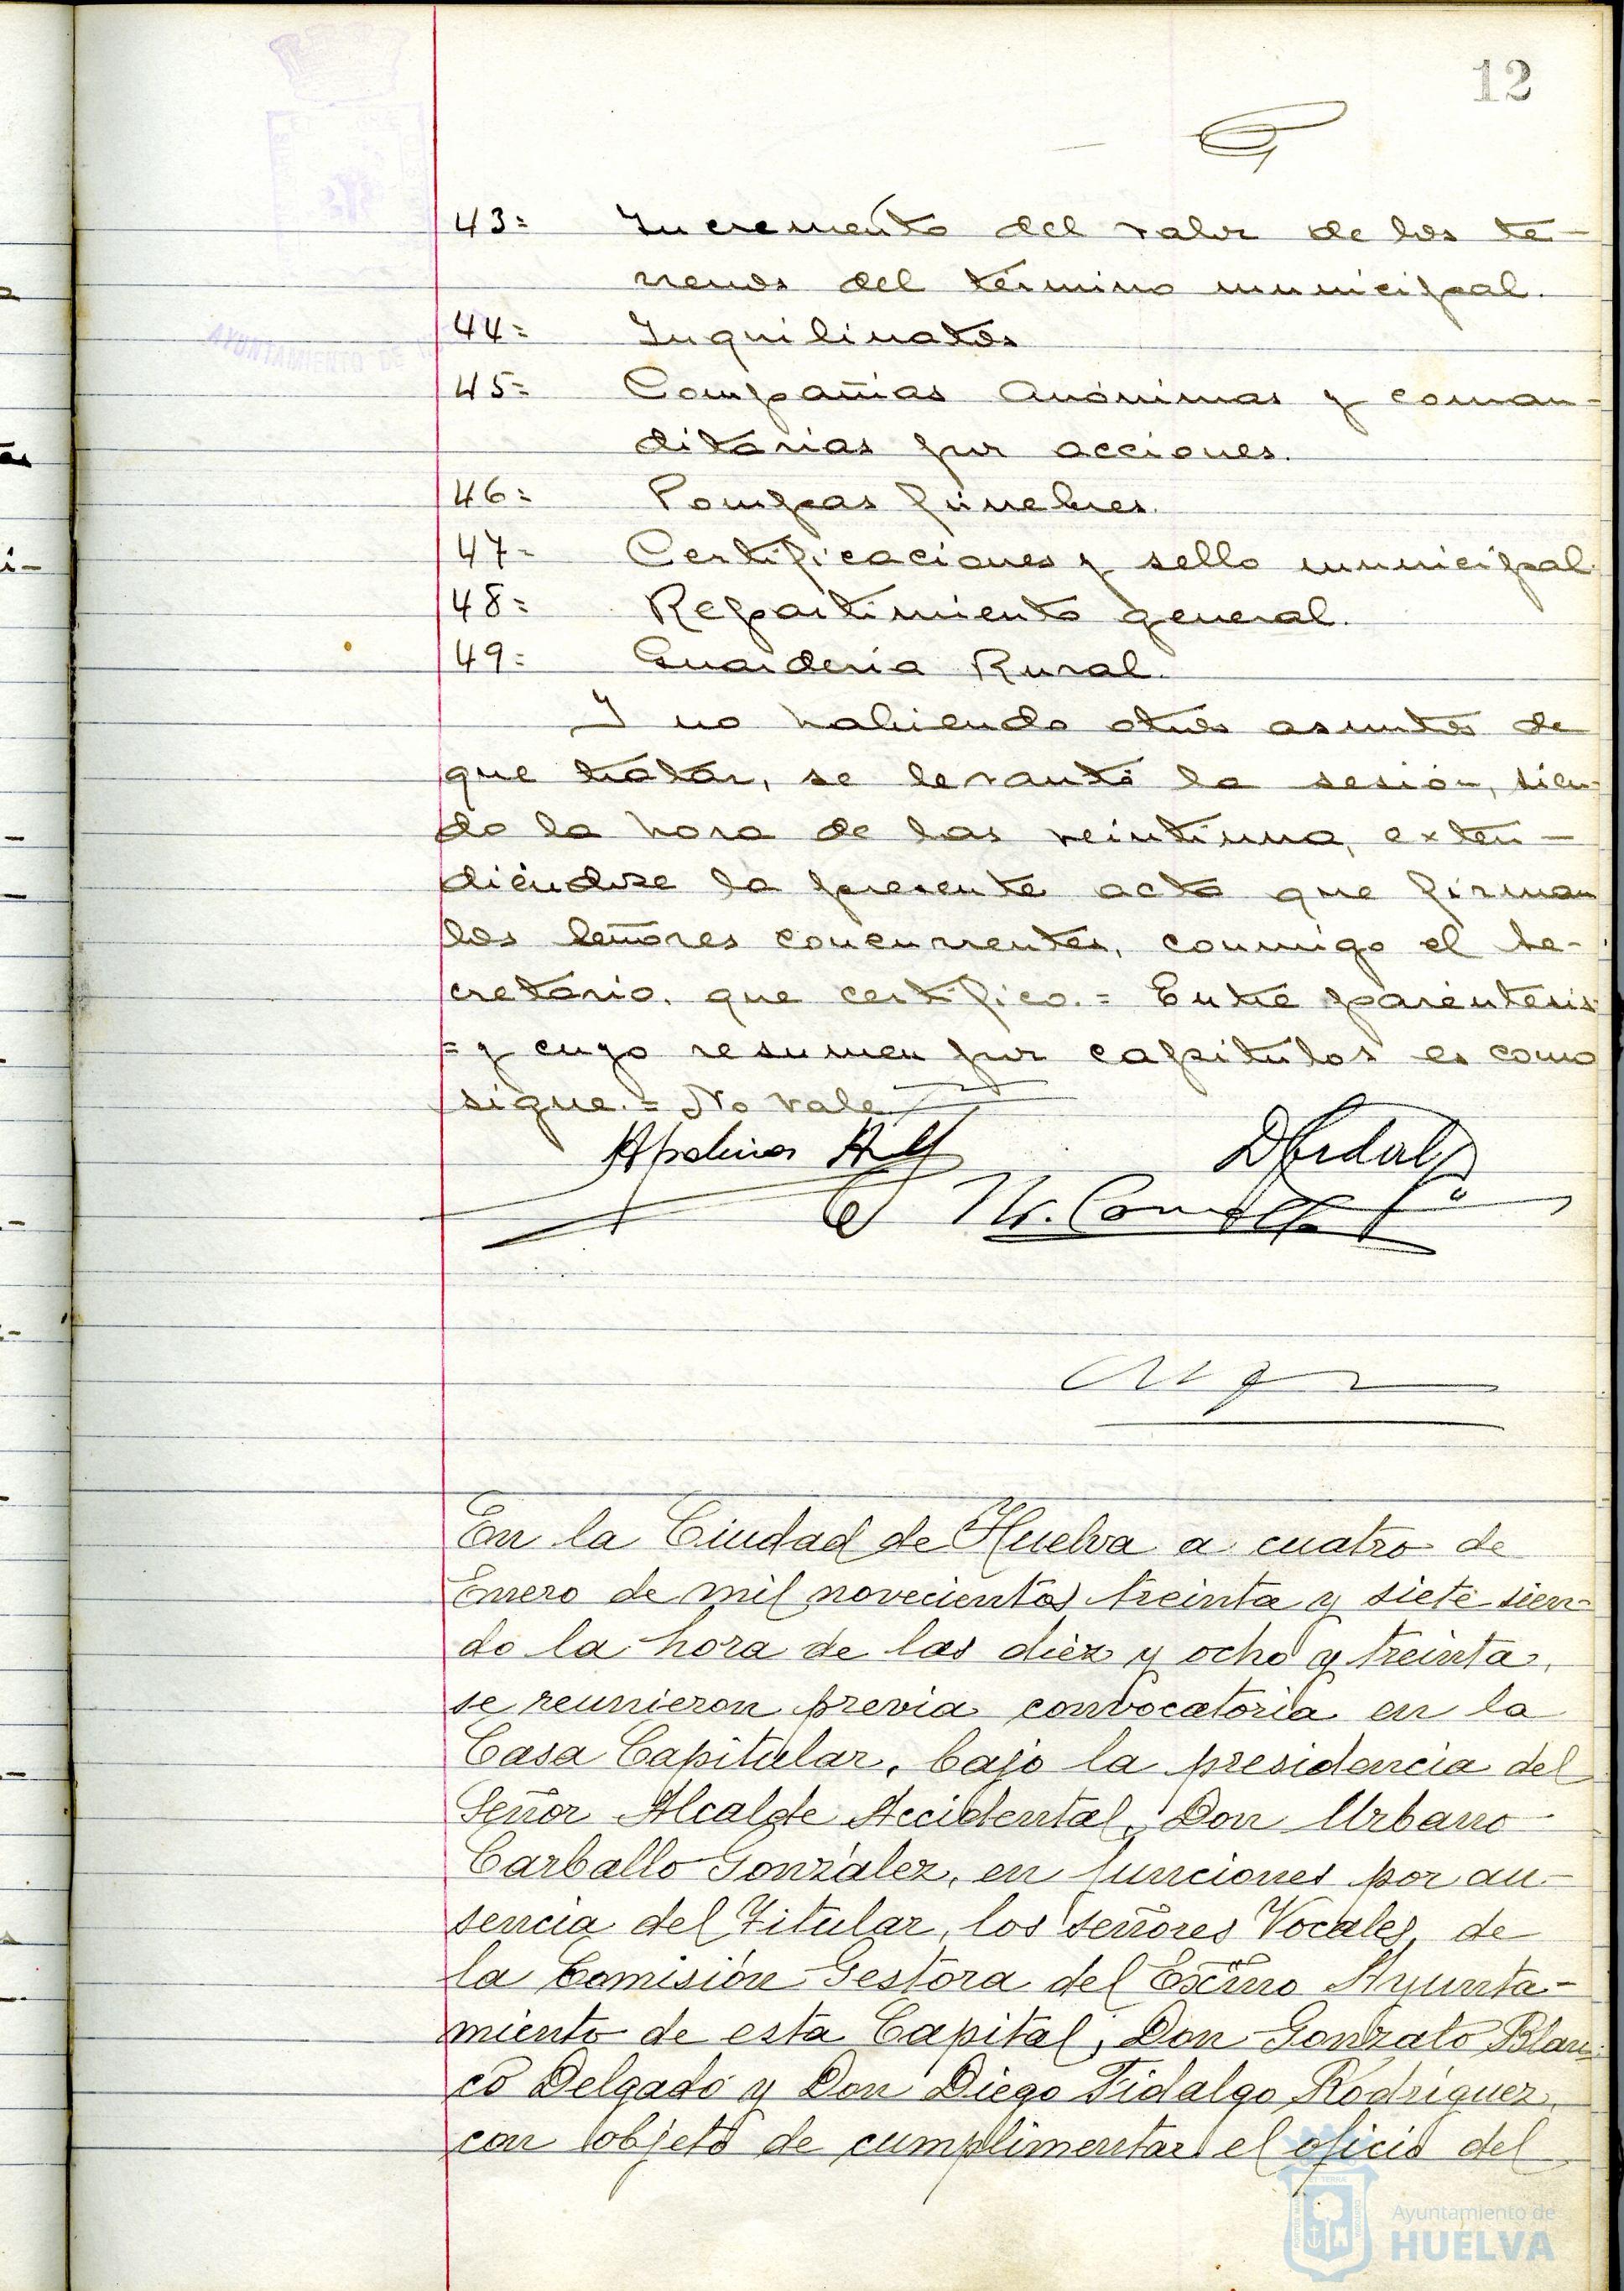 12
43= Incremento del valor de los te-
rrenos del término municipal.
44= Inquilinatos
45= Compañias Anónimas y coman-
ditarias por acciones.
46= Pompas fúnebres.
47= Certificaciones y sello municipal.
48= Repartimiento general.
49= Guarderia Rural.
Y no habiendo otros asuntos de
que tratar, se levantó la sesión, sien-
do la hora de las veintiuna, exten-
diéndose la presente acta que firman
los señores concurrentes, conmigo el Se-
cretario, que certifico.= Entre paréntesis
=y cuyo resumen por capítulos es como
sigue.= No vale
Apolinar
DFidalgo
En la Ciudad de Huelva a cuatro de
Enero de mil novecientos treinta y siete sien-
do la hora de las diez y ocho y treinta,
se reunieron previa convocatoria en la
Casa Capitular, bajo la presidencia del
Señor Alcalde Accidental, Don Urbano
Carballo González, en funciones por au-
sencia del Titular, los señores Vocales de
la Comisión Gestora del Excmo Ayunta-
miento de esta Capital, Don Gonzalo Blan-
co Delgado y Don Diego Fidalgo Rodríguez,
con objeto de cumplimentar el oficio del
AYUNTAMIENTO DE
Ayuntamiento de
HUELVA